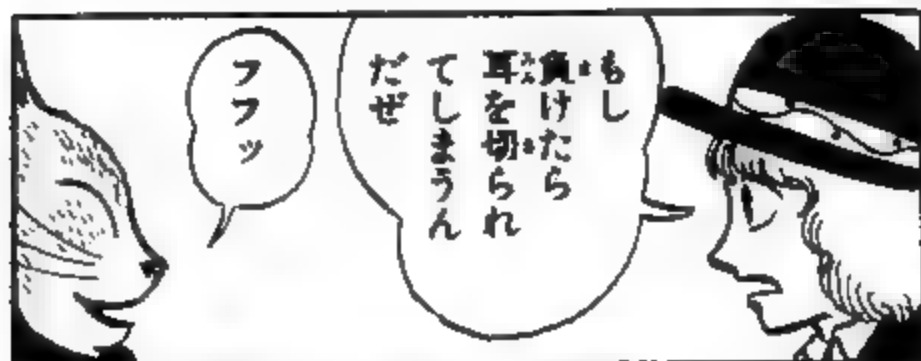 もし
負けたら
耳を切られ
てしまうん
だぜ
フフッ